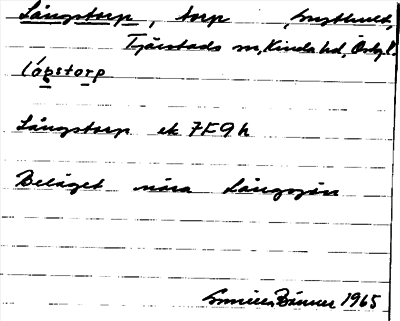 Långstorp, torp
Tjärstads sn, Kinda hd, Östg. l.
lóŋstorp
Långstorp ek 7F9h
Beläget nära Långsjön
1965